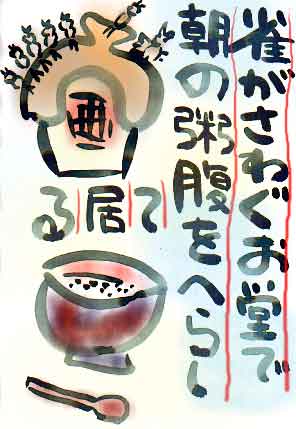 雀がさわぐお堂で
朝の粥腹をへらし
て居る